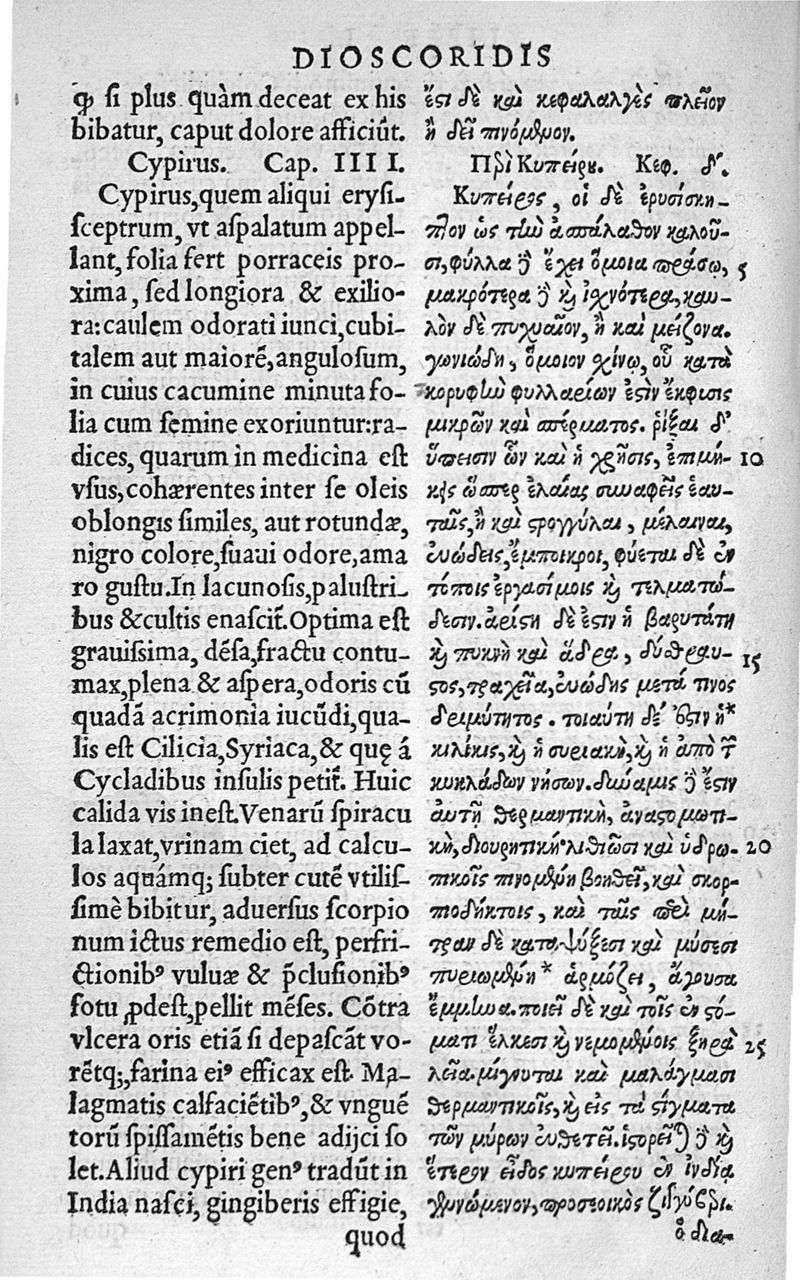 DIOSCORIDIS
ꝙ ſi plus quàm deceat ex his
bibatur, caput dolore afficiũt.
Cypirus. Cap. IIII.
Cypirus, quem aliqui eryſi-
ſceptrum, vt aſpalatum appel-
lant, folia fert porraceis pro-
xima, ſed longiora & exilio-
ra: caulem odorati iunci, cubi-
talem aut maiorẽ, anguloſum,
in cuius cacumine minuta fo-
lia cum ſemine exoriuntur: ra-
dices, quarum in medicina eſt
vſus, cohærentes inter ſe oleis
oblongis ſimiles, aut rotundæ,
nigro colore, ſuaui odore, ama
ro guſtu. In lacunoſis, paluſtri-
bus & cultis enaſcit̃. Optima eſt
grauiſsima, dẽſa, fractu contu-
max, plena & aſpera, odoris cũ
quadã acrimonia iucũdi, qua-
lis eſt Cilicia, Syriaca, & quę á
Cycladibus inſulis petit̃. Huic
calida vis ineſt. Venarũ ſpiracu
la laxat, vrinam ciet, ad calcu-
los aquámq; ſubter cutẽ vtiliſ-
ſimè bibitur, aduerſus ſcorpio
num ictus remedio eſt, perfri-
ctionibꝰ vuluæ & p̃cluſionibꝰ
fotu ꝓdeſt, pellit mẽſes. Cõtra
vlcera oris etiã ſi depaſcãt vo-
rẽtq;, farina eiꝰ efficax eſt. Ma-
lagmatis calfaciẽtibꝰ, & vnguẽ
torũ ſpiſſamẽtis bene adijci ſo
let. Aliud cypiri genꝰ tradũt in
India naſci, gingiberis effigie,
quod
ἔστι δὲ καὶ κεφαλαλγὲς πλεῖον
ἢ δεῖ πινόμενον.
Περὶ Κυπείρου. Κεφ. δ´.
Κυπείρος, οἱ δὲ ἐρυσίσκη-
πτον ὡς τὴν ἀσπάλαθον καλοῦ-
σι, φύλλα δὲ ἔχει ὅμοια πράσῳ, 5
μακρότερα δὲ καὶ ἰχνότερα, καυ-
λὸν δὲ πυχυαῖον, ἢ καὶ μείζονα.
γωνιώδη, ὅμοιον χίνῳ, οὗ κατὰ
κορυφὴν φυλλαείων ἐστὶν ἔκφισις
μικρῶν καὶ σπέρματος. ῥίζαι δ᾽
ὕπεισιν ὧν καὶ ἡ χρῆσις, ἐπιμή- 10
κεις ὥσπερ ἐλαίας συναφεῖς ἑαυ-
ταῖς, ἢ καὶ στρογγύλαι, μέλαιναι,
εὐώδεις, ἔμποικροι, φύεται δὲ ἐν
τόποις ἐργασίμοις καὶ τελματώ-
δεσιν. ἀρίστη δὲ ἐστὶν ἡ βαρυτάτη
καὶ πυκνὴ καὶ ἅδρα, δύσθραυ- 15
στος, τραχεῖα, εὐώδης μετά τινος
δειμύτητος. τοιαύτη δέ ἐστιν ἡ*
κιλίκις, καὶ ἡ συριακὴ, καὶ ἡ ἀπὸ τῶν
κυκλάδων νήσων. δύναμις δὲ ἔστιν
αὐτῇ θερμαντικὴ, ἀναστομωτι-
κὴ, διουρητικὴ λιθιῶσι καὶ ὑδρω- 20
πικοῖς πινομένη βοηθεῖ, καὶ σκορ-
πιοδήκτοις, καὶ ταῖς περὶ μή-
τραν δὲ καταψύξεσι καὶ μύσεσι
πυριωμένη* ἁρμόζει, ἄγουσα
ἔμμηνα. ποιεῖ δὲ καὶ τοῖς ἐν στό-
ματι ἕλκεσι καὶ νεμομένοις ξηρὰ 25
λεῖα. μίγνυται καὶ μαλάγμασι
θερμαντικοῖς, καὶ εἰς τὰ στίγματα
τῶν μύρων εὐθετεῖ. ἱστορεῖται δὲ καὶ
ἕτερον εἶδος κυπείρου ἐν ἰνδίᾳ
γεννώμενον, προσεοικὸς ζιγγίβερι.
ὃ δια-